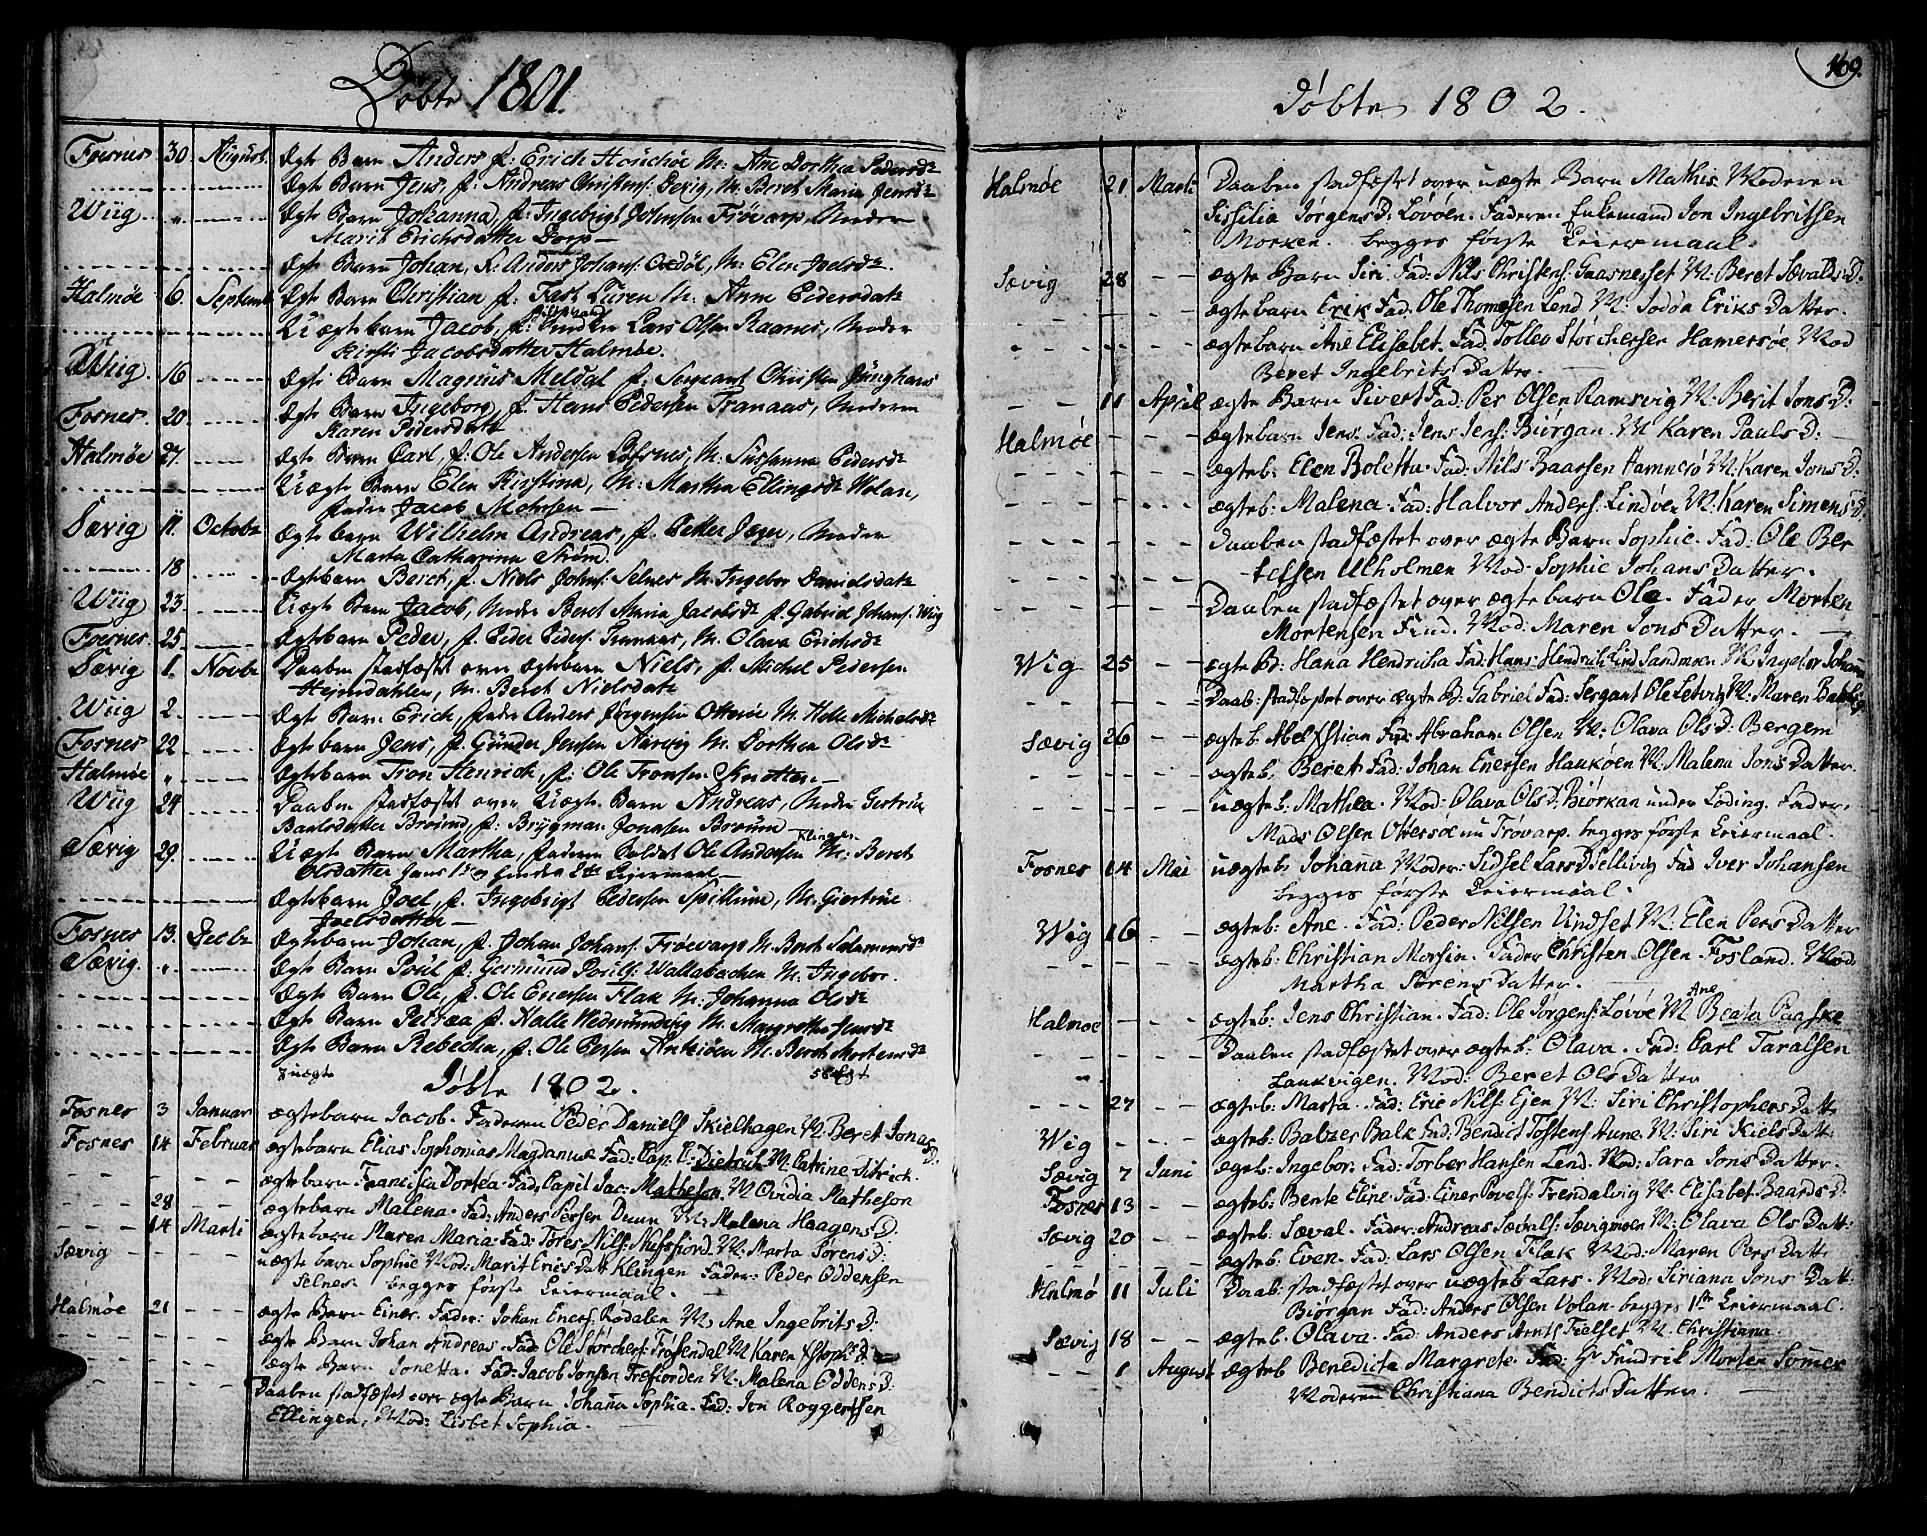 Døbte 1801.
Fosnes 30. August. Ægte Barn Anders f: Erich Houchøe M: Ane Dorthea Pedersdr
Ægte Barn Jens, f. Andreas Christens: Devig, M. Beret Maria Jensdr
Wiig. " Ægte Barn Johanna, f: Ingebrigt Johnsen Trøvarp, Moder
Marit Erichsdatter Dorp
Ægte Barn Johan, f. Anders Johans: Oxdøl, M: Elen Joelsdr.
Halmøe 6. Septemb Ægte Barn Christian f: Fast Luren M: Anne Pedersdatr
Uægte barn Jacob, f: Lars Olsen Raanes, Moder
Kirsti Jacobsdatter Halmøe.
Wiig. 16 Ægte Barn Magnus Meldal f. Sergeant Christen Junghans
Fosnes. 20. Ægte Barn Ingeborg, f. Hans Pedersen Tranaas, Moderen
Karen Pedersdatr
Halmøe 27. Ægte Barn Carl, f: Ole Andersen Lofsnes, M: Sussanna Pedersdr
Uægte Barn Elen Kirstina, M: Martha Ellingsdr Wolan,
fader Jacob Mohrsen
Sævig 11. Octobr Ægte barn Wilhelm Andreas, f. Petter Jæger, Moder
Marta Catharina Strøm.
18 Ægte barn Beret, f. Niels Johns: Selnes M. Ingebor Danielsdatr
Wiig 23. Uægte Barn Jacob, Moder Beret Maria Jacobsdr f. Gabriel Johans. Wiig
Fosnes. 25. Ægtebarn Peder, f. Peder Peders. Tranaas, M. Olava Erichsdr
Sævig 1. Novbr Daaben stadfæstet over Ægtebarn Niels, f. Michel Pedersen
Heimdahlen, M. Beret Nielsdatr
Wiig 2. Ægte Barn Erich, fader Anders Jørgensen Otterøe M. Helle Michelsdr
Fosnes 22 Ægte barn Jens, f. Gunder Jensen Aarvig M. Dorthea Olsdr
Halmøe " Ægtebarn Tron Henrich, f: Ole Tronsen Knotten
Wiig 24 Daaben stadfæstet over Uægte Barn Andreas, Moder Giertrue
Baalsdatter Bround, f: Brygman Jonasen Broum
Sævig 29. Uægte Barn Martha, faderen Soldat Ole Andersen Klingen M: Beret
Olsdatter hans 1te og hendes 2de Leiermaal
Ægtebarn Joel, f. Ingebrigt Pedersen Spillum, M. Giertrue
Joelsdatter
Fosnes 13. Decbr Ægtebarn Johan, f. Johan Johans: Trøevarp M. Beret Salamonsdr
Sævig. " Ægte Barn Poul f: Germund Pouls: Wallabachen M: Ingebor.
Ægte Barn Ole, f. Ole Enersen Flak M. Johanna Olsdr
Ægte Barn Petræa f. Halle Wedmundvig M. Margretha Jensdr
Ægte Barn Rebecha, f: Ole Persen Ankiøen M. Beret Mortensdr
7 uægte 58 ægt
Døbte 1802.
Fosnes 3 Januar ægtebarn Jacob. Faderen Peder Daniels Skielhagen M: Beret Jonas D.
Fosnes 14 Februar ægtebarn Elias Sophonias Magdanus Fad: Cap: C. Dietrich M: Catrine Ditrich.
ægtebarn Francisca Dortea. Fad: Capit Jac: Matheson. M Ovidia Matheson
28 ægtebarn Malena. Fad: Anders Persen Duun M: Malena Haagens D.
14 Marti ægtebarn Maren Maria. Fad: Tores Nils: Nufsfiord. M: Marta Sørens D:
Sævig uægte barn Sophie Mod: Marit Erics Datt Klingen Fader: Peder Oddensen
Selnes. begges første Leiermaal.
Halmøe 21 ægte Barn Einer. Fader: Johan Eners: Rødalen M. Ane Ingebrits D:
ægte Barn Johan Andreas. Fad Ole Størchers: Trøsendal M Karen Xstophs D.
ægte Barn Jonetta. Fad: Jacob Jonsen Træfiorden M: Malena Oddens D.
Daaben stadfæstet over ægte Barn Johana Sophia. Fad: Jon Roggertsen
Ellingen, Mod: Lisbet Sophia.
169.
Døbte 1802.
Halmøe 21 Marti Daaben stadfæstet over uægte Barn Mathis. Moderen
Sissilia Jørgens D: Løvøen. Faderen Enkemand Jon Ingebritsen
Morken. begges første Leiermaal.
Sævig 28 ægte Barn Siri. Fad: Nils Christens: Gaasnesset M: Beret Sævalds D:
ægtebarn Erik Fad: Ole Thomesen Lend M: Dodda Eriks Datter.
ægtebarn Ane Elisabet. Fad. Tollev Størchersen Hamersøe. Mod
Beret Ingebrits Datter.
11 April ægte Barn Sivert Fad: Per Olsen Ramsvig M: Berit Jons D:
Halmøe ægtebarn Jens. Fad: Jens Jens: Biørgan. M Karen Pauls D:
ægteb: Elen Boletta. Fad: Nils Baarsen Hamnerø M: Karen Jons D:
ægteb: Malena. Fad: Halvor Anders: Lindøen M: Karen Simens D.
Daaben stadfæstet over ægte Barn Sophie. Fad: Ole Ber
telsen Ulholmen Mod: Sophie Johans Datter.
Daaben stadfæstet over ægte barn Ole. Fader Morten
Mortensen Find. Mod: Maren Jons Datter.
Wig 25 ægte B: Hana Hendricha Fad: Hans Hendrich Lind Sandmoen M. Ingebor Johanne
Daab: stadfæstet over ægte B: Gabriel Fad: Sergant Ole Letvig M. Maren
Sævig 26 ægteb. Abel Xstian Fad: Abraham Olsen M: Olava Ols D: Bergem
ægteb: Beret Fad: Johan Enersen Haukøen M: Malena Jons Datter.
uægteb: Mathea. Mod: Olava Ols D: Biørkan under Løding. Fader.
Mads Olsen Ottersøe nu Trøvarp. begges første Leiermaal.
Fosnes 14 Mai uægteb: Johana Moder: Sidsel Lars D Sellivig Fad Iver Johansen
begges første Leiermaal.
Wig 16 ægteb: Ane. Fad: Peder Nilsen Vindset M: Elen Pers Datter
ægteb: Christian Morsin. Fader Christen Olsen. Fosland. Mod:
Martha Sørens Datter.
Halmøe ægteb: Jens Christian. Fad: Ole Jørgens: Løvøe M Ane Beata Paaske
Daaben stadfæstet over ægteb: Olava. Fad: Carl Taralsen
Laukvigen. Mod: Beret Ols Datter
27 ægteb: Marta. Fad: Eric Nils: Ejen M: Siri Christophers Datt
Wig ægteb: Balzer Balk Fad: Bendict Tostens: Aune. M: Siri Kiels Datt.
Sævig 7 Juni ægteb: Ingebor. Fad: Torber Hansen Lend. Mod: Sara Jons Datter.
Fosnes 13 ægteb: Bente Eline. Fad: Einer Povels: Trendalvig M: Elisabet Baards D.
Sævig 20 ægteb: Sæval. Fader: Andreas Sævals: Sævigmoen M: Olava Ols Datt:
ægteb: Even. Fad: Lars Olsen Flak Mod: Maren Pers Datt
Halmø 11 Juli Daab: stadfæstet over uægteb Lars. Mod: Siriana Jons Datt:
Biørgan Fad: Anders Olsen Volan. begges 1ste Leiermaal.
Sævig 18 ægteb: Olava. Fad: Anders Arnts Fielset M. Christiana.
1 August ægteb Benedicta Margrete. Fad: Hr Fendrik Morten Sommer
Moderen Christiana Bendicts Datter.